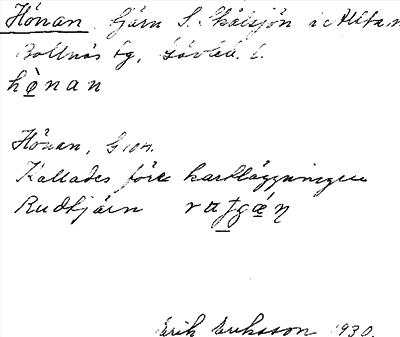 Hönan. Tjärn S. Skålsjön i Alfta n
Bollnäs tg, Gävleb. l.
hö̀nan
Hönan, G 104.
Kallades före kartläggningen
Rudtjärn
Erik Eriksson 1930.